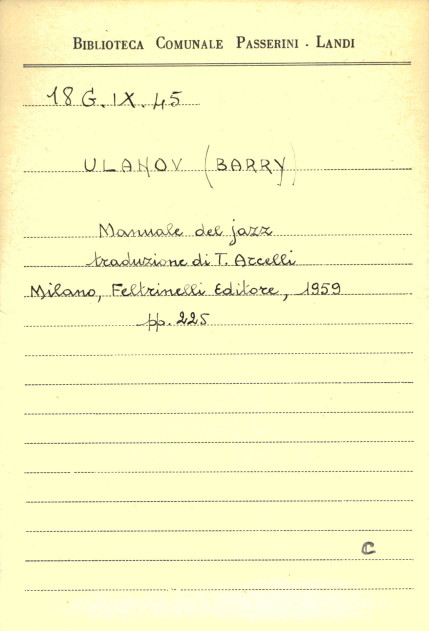 BIBLIOTECA COMUNALE PASSERINI - LANDI
18 G. IX. 45
ULANOV (BARRY)
Manuale del jazz
traduzione di T. Arcelli
Milano, Feltrinelli Editore, 1959
pp. 225
C